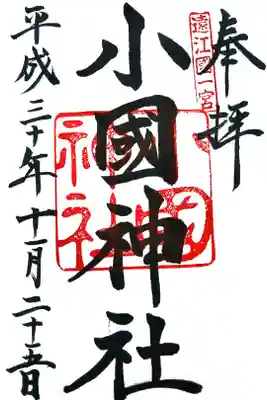 奉拝
遠江國一宮
小國神社
平成三十年十一月二十五日